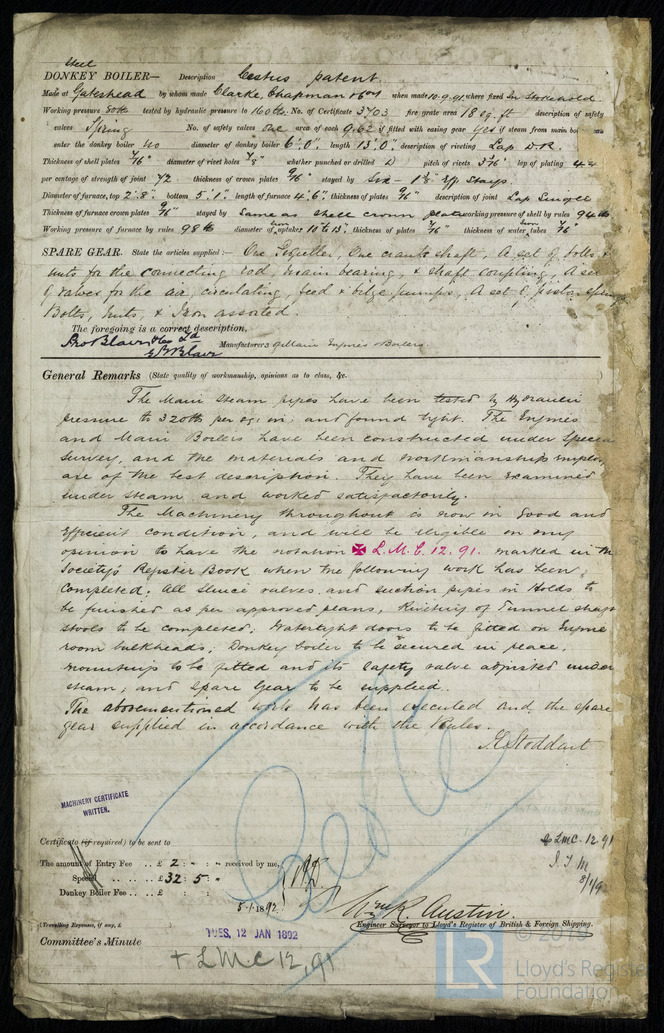 Steel
DONKEY BOILER— Description Cestus patent
Made at Gateshead by whom made Clarke, Chapman & Co when made 10.9.91 where fixed In Stokehold
Working pressure 80 lb tested by hydraulic pressure to 160 lb. No. of Certificate 3703 fire grate area 18 sq. ft description of safety
valves Spring No. of safety valves One area of each 9.62 if fitted with easing gear yes if steam from main boilers can
enter the donkey boiler No diameter of donkey boiler 6'.0" length 13'.0" description of riveting Lap D.R.
Thickness of shell plates 7/16" diameter of rivet holes 7/8" whether punched or drilled D pitch of rivets lap of plating
per centage of strength of joint 72 thickness of crown plates 9/16" stayed by Six - 1 5/8" Eff Stays.
Diameter of furnace, top 2'.8". bottom 5'.1". length of furnace 4'.6". thickness of plates 9/16" description of joint Lap Single
Thickness of furnace crown plates 9/16" stayed by Same as shell crown plate working pressure of shell by rules 94 lb
Working pressure of furnace by rules 98 lb diameter of uptake 10" & 13". thickness of plates 7/16" thickness of water tubes 7/16"
SPARE GEAR. State the articles supplied:— One Propeller, One crank shaft, A set of bolts &
nuts for the connecting rod, main bearing, & shaft coupling, A set
of valves for the air, circulating, feed & bilge pumps, A set of piston springs
Bolts, Nuts, & Iron assorted.
The foregoing is a correct description,
Jno Blair & Co Ld
G. Blair Manufacturers of Main Engines & Boilers.
General Remarks (State quality of workmanship, opinions as to class, &c.
The Main Steam pipes have been tested by Hydraulic
pressure to 320 lb per sq. in. and found tight. The Engines
and Main Boilers have been constructed under Special
Survey, and the materials and workmanship employed
are of the best description. They have been examined
under steam and worked satisfactorily.
The Machinery throughout is now in Good and
efficient condition, and will be eligible in my
opinion to have the notation ✠ L.M.C. 12.91. marked in the
Society's Register Book when the following work has been
completed; All sluice valves and suction pipes in Holds to
be finished as per approved plans, Riveting of Tunnel shaft
stools to be completed; Watertight doors to be fitted on Engine
room bulkheads; Donkey boiler to be secured in place,
mountings to be fitted and its safety valve adjusted under
steam; and Spare Gear to be supplied.
The abovementioned work has been executed and the spare
gear supplied in accordance with the Rules.
J. E. Stoddart
MACHINERY CERTIFICATE
WRITTEN.
Certificate (if required) to be sent to
L.M.C. 12.91
The amount of Entry Fee .. £ 2 : - : - received by me,
Special .. £ 32 : 5 : -
Donkey Boiler Fee .. £ : :
5.1.1892
Wm R. Austin.
(Travelling Expenses, if any, £ )
Engineer Surveyor to Lloyd's Register of British & Foreign Shipping.
TUES, 12 JAN 1892
Committee's Minute
+ L M C 12,91
LR © 2019
Lloyd's Register
Foundation